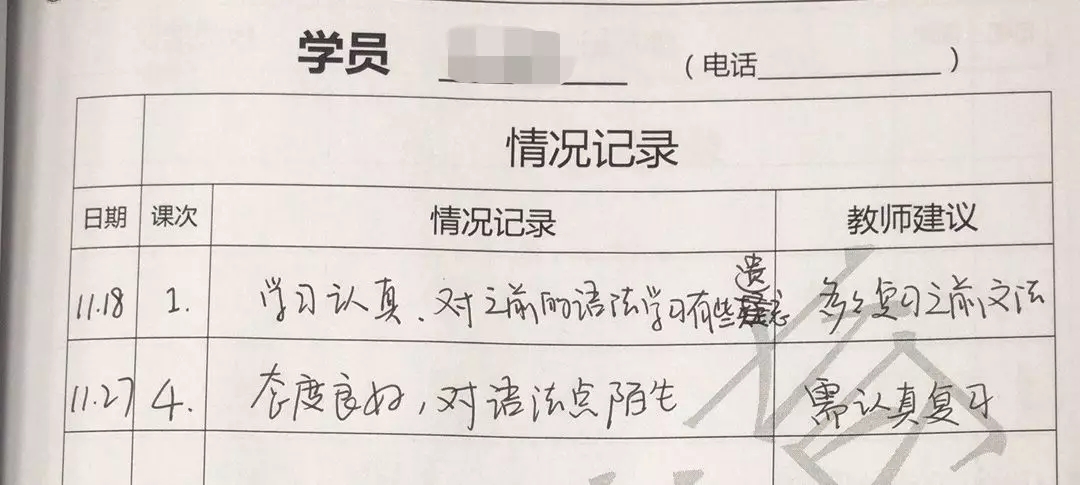 学员 （电话 ）
情况记录
日期 课次 情况记录 教师建议
11.18 1. 学习认真、对之前的语法学习有些遗忘 多多复习之前文法
11.27 4. 态度良好，对语法点陌生 需认真复习